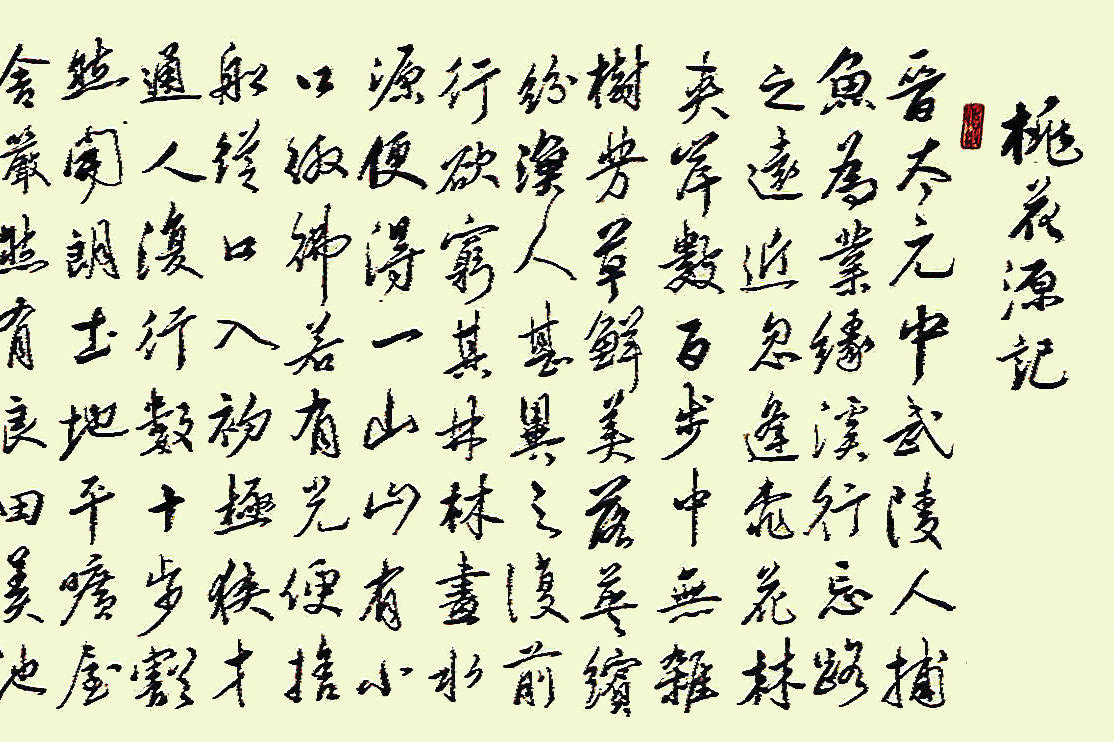 桃花源記
晉太元中武陵人捕
魚為業緣溪行忘路
之遠近忽逢桃花林
夾岸數百步中無雜
樹芳草鮮美落英繽
紛漁人甚異之復前
行欲窮其林林盡水
源便得一山山有小
口彷彿若有光便捨
船從口入初極狹才
通人復行數十步豁
然開朗土地平曠屋
舍儼然有良田美池